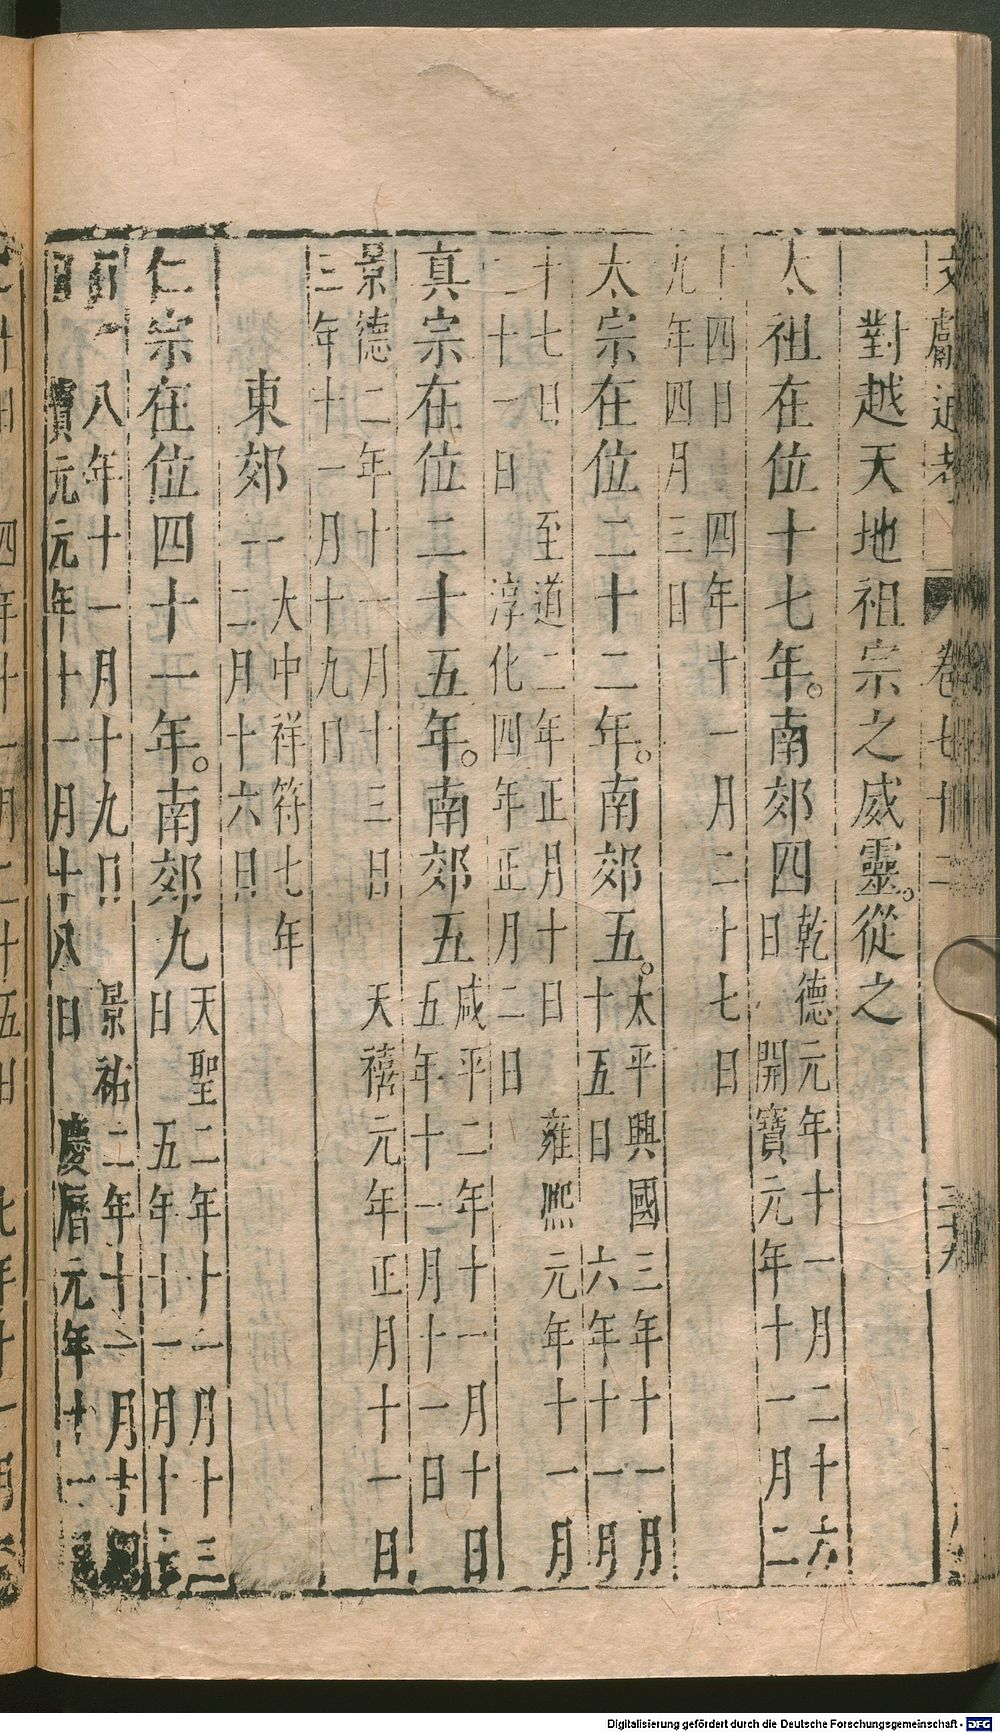 文獻通考 卷七十二 三十九
對越天地祖宗之威靈。從之
太祖在位十七年。南郊四
乾德元年十一月二十六
日 開寶元年十一月二
十四日 四年十一月二十七日
九年四月三日
太宗在位二十二年。南郊五。
太平興國三年十一月
十五日 六年十一月
十七日 至道二年正月十日 雍熙元年十一月
二十一日 淳化四年正月二日
真宗在位二十五年。南郊五
咸平二年十一月十日
五年十一月十一日
景德二年十一月十三日 天禧元年正月十一日
三年十一月十九日
東郊一
大中祥符七年
二月十六日
仁宗在位四十一年。南郊九
天聖二年十一月十三
日 五年十一月十
八年十一月十九日 景祐二年十一月十
日 寶元元年十一月十八日 慶曆元年十一
Digitalisierung gefördert durch die Deutsche Forschungsgemeinschaft - DFG